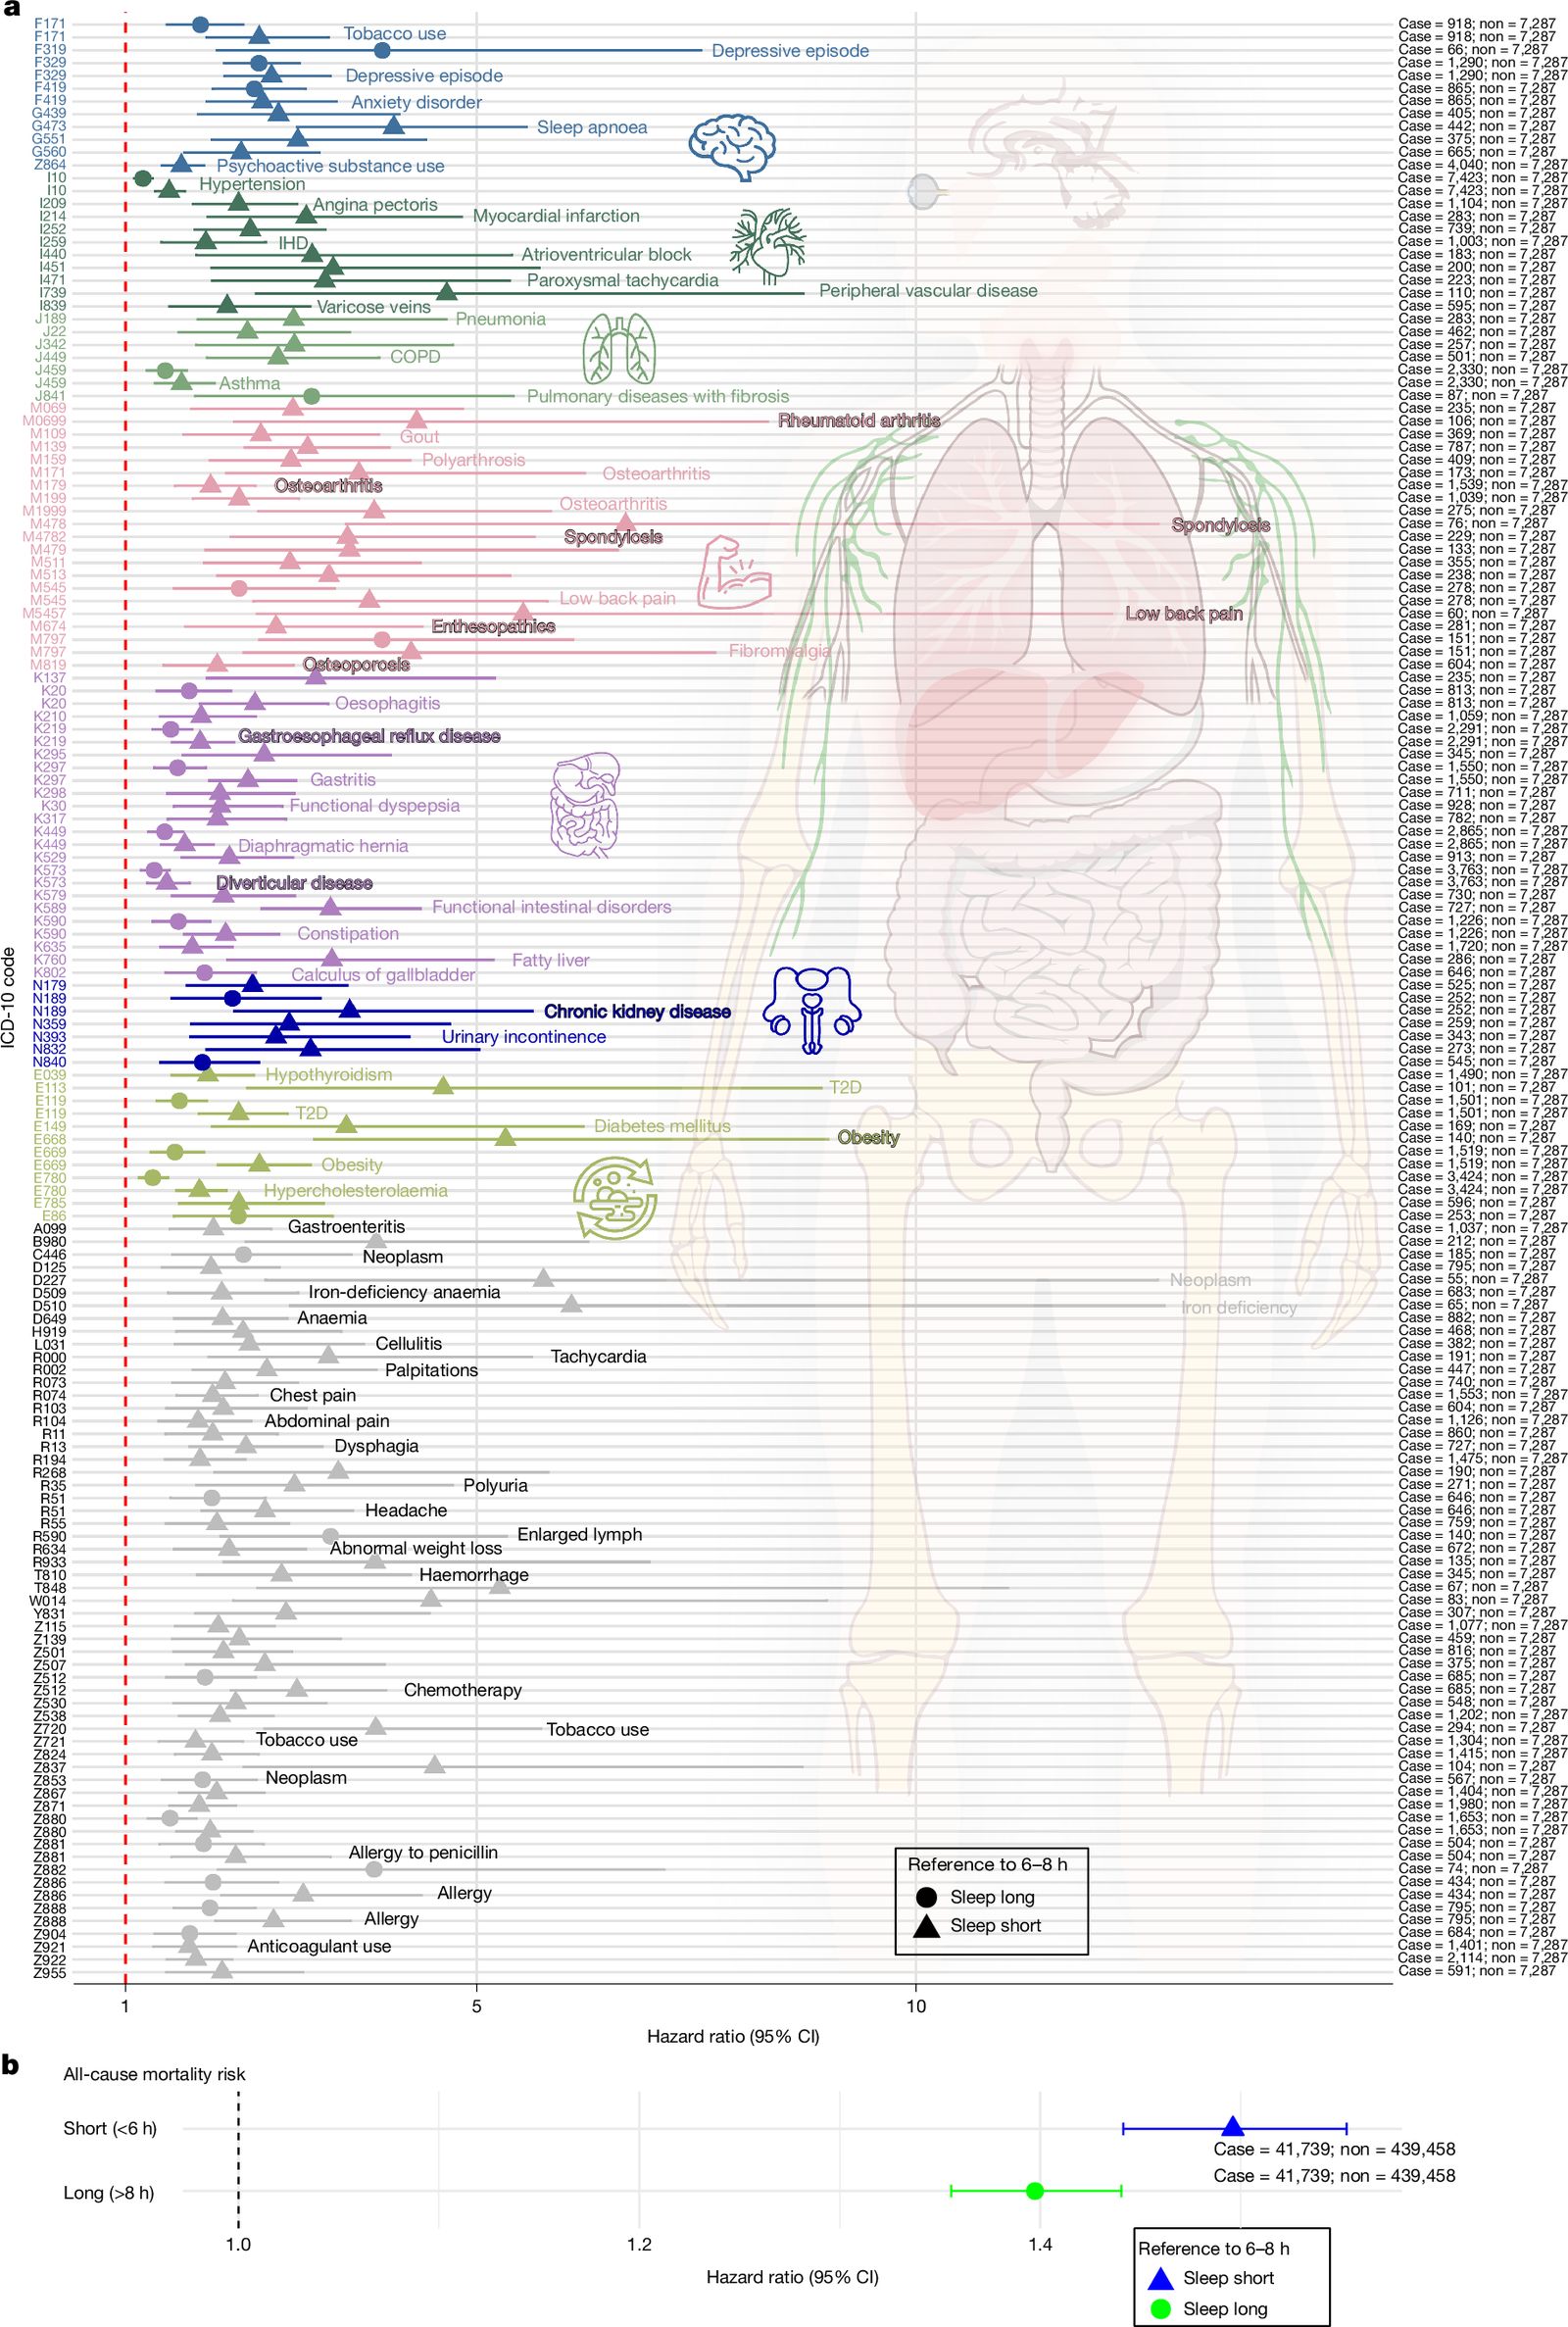 a
F171 Case = 918; non = 7,287
F171 Tobacco use Case = 918; non = 7,287
F319 Depressive episode Case = 66; non = 7,287
F329 Case = 1,290; non = 7,287
F329 Depressive episode Case = 1,290; non = 7,287
F419 Case = 865; non = 7,287
F419 Anxiety disorder Case = 865; non = 7,287
G439 Case = 405; non = 7,287
G473 Sleep apnoea Case = 442; non = 7,287
G551 Case = 375; non = 7,287
G560 Case = 665; non = 7,287
Z864 Psychoactive substance use Case = 4,040; non = 7,287
I10 Case = 7,423; non = 7,287
I10 Hypertension Case = 7,423; non = 7,287
I209 Angina pectoris Case = 1,104; non = 7,287
I214 Myocardial infarction Case = 283; non = 7,287
I252 Case = 739; non = 7,287
I259 IHD Case = 1,003; non = 7,287
I440 Atrioventricular block Case = 183; non = 7,287
I451 Case = 200; non = 7,287
I471 Paroxysmal tachycardia Case = 223; non = 7,287
I739 Peripheral vascular disease Case = 110; non = 7,287
I839 Varicose veins Case = 595; non = 7,287
J189 Pneumonia Case = 283; non = 7,287
J22 Case = 462; non = 7,287
J342 Case = 257; non = 7,287
J449 COPD Case = 501; non = 7,287
J459 Case = 2,330; non = 7,287
J459 Asthma Case = 2,330; non = 7,287
J841 Pulmonary diseases with fibrosis Case = 87; non = 7,287
M069 Case = 235; non = 7,287
M0699 Rheumatoid arthritis Case = 106; non = 7,287
M109 Gout Case = 369; non = 7,287
M139 Case = 787; non = 7,287
M159 Polyarthrosis Case = 409; non = 7,287
M171 Osteoarthritis Case = 173; non = 7,287
M179 Osteoarthritis Case = 1,539; non = 7,287
M199 Case = 1,039; non = 7,287
M1999 Osteoarthritis Case = 275; non = 7,287
M478 Spondylosis Case = 76; non = 7,287
M4782 Spondylosis Case = 229; non = 7,287
M479 Case = 133; non = 7,287
M511 Case = 355; non = 7,287
M513 Case = 238; non = 7,287
M545 Case = 278; non = 7,287
M545 Low back pain Case = 278; non = 7,287
M5457 Low back pain Case = 60; non = 7,287
M674 Enthesopathics Case = 281; non = 7,287
M797 Case = 151; non = 7,287
M797 Fibromyalgia Case = 151; non = 7,287
M819 Osteoporosis Case = 604; non = 7,287
K137 Case = 235; non = 7,287
K20 Case = 813; non = 7,287
K20 Oesophagitis Case = 813; non = 7,287
K210 Case = 1,059; non = 7,287
K219 Case = 2,291; non = 7,287
K219 Gastroesophageal reflux disease Case = 2,291; non = 7,287
K295 Case = 345; non = 7,287
K297 Case = 1,550; non = 7,287
K297 Gastritis Case = 1,550; non = 7,287
K298 Case = 711; non = 7,287
K30 Functional dyspepsia Case = 928; non = 7,287
K317 Case = 782; non = 7,287
K449 Case = 2,865; non = 7,287
K449 Diaphragmatic hernia Case = 2,865; non = 7,287
K529 Case = 913; non = 7,287
K573 Case = 3,763; non = 7,287
K573 Diverticular disease Case = 3,763; non = 7,287
K579 Case = 730; non = 7,287
K589 Functional intestinal disorders Case = 727; non = 7,287
K590 Case = 1,226; non = 7,287
K590 Constipation Case = 1,226; non = 7,287
K635 Case = 1,720; non = 7,287
K760 Fatty liver Case = 286; non = 7,287
K802 Calculus of gallbladder Case = 646; non = 7,287
N179 Case = 525; non = 7,287
N189 Case = 252; non = 7,287
N189 Chronic kidney disease Case = 252; non = 7,287
N359 Case = 259; non = 7,287
N393 Urinary incontinence Case = 343; non = 7,287
N832 Case = 273; non = 7,287
N840 Case = 545; non = 7,287
E039 Hypothyroidism Case = 1,490; non = 7,287
E113 T2D Case = 101; non = 7,287
E119 Case = 1,501; non = 7,287
E119 T2D Case = 1,501; non = 7,287
E149 Diabetes mellitus Case = 169; non = 7,287
E668 Obesity Case = 140; non = 7,287
E669 Case = 1,519; non = 7,287
E669 Obesity Case = 1,519; non = 7,287
E780 Case = 3,424; non = 7,287
E780 Hypercholesterolaemia Case = 3,424; non = 7,287
E785 Case = 596; non = 7,287
E86 Case = 253; non = 7,287
A099 Gastroenteritis Case = 1,037; non = 7,287
B980 Case = 212; non = 7,287
C446 Neoplasm Case = 185; non = 7,287
D125 Case = 795; non = 7,287
D227 Neoplasm Case = 55; non = 7,287
D509 Iron-deficiency anaemia Case = 683; non = 7,287
D510 Iron deficiency Case = 65; non = 7,287
D649 Anaemia Case = 882; non = 7,287
H919 Case = 468; non = 7,287
L031 Cellulitis Case = 382; non = 7,287
R000 Tachycardia Case = 191; non = 7,287
R002 Palpitations Case = 447; non = 7,287
R073 Case = 740; non = 7,287
R074 Chest pain Case = 1,553; non = 7,287
R103 Case = 604; non = 7,287
R104 Abdominal pain Case = 1,126; non = 7,287
R11 Case = 860; non = 7,287
R13 Dysphagia Case = 727; non = 7,287
R194 Case = 1,475; non = 7,287
R268 Case = 190; non = 7,287
R35 Polyuria Case = 271; non = 7,287
R51 Case = 646; non = 7,287
R51 Headache Case = 646; non = 7,287
R55 Case = 759; non = 7,287
R590 Enlarged lymph Case = 140; non = 7,287
R634 Abnormal weight loss Case = 672; non = 7,287
R933 Case = 135; non = 7,287
T810 Haemorrhage Case = 345; non = 7,287
T848 Case = 67; non = 7,287
W014 Case = 83; non = 7,287
Y831 Case = 307; non = 7,287
Z115 Case = 1,077; non = 7,287
Z139 Case = 459; non = 7,287
Z501 Case = 816; non = 7,287
Z507 Case = 375; non = 7,287
Z512 Case = 685; non = 7,287
Z512 Chemotherapy Case = 685; non = 7,287
Z530 Case = 548; non = 7,287
Z538 Case = 1,202; non = 7,287
Z720 Tobacco use Case = 294; non = 7,287
Z721 Tobacco use Case = 1,304; non = 7,287
Z824 Case = 1,415; non = 7,287
Z837 Case = 104; non = 7,287
Z853 Neoplasm Case = 567; non = 7,287
Z867 Case = 1,404; non = 7,287
Z871 Case = 1,980; non = 7,287
Z880 Case = 1,653; non = 7,287
Z880 Case = 1,653; non = 7,287
Z881 Case = 504; non = 7,287
Z881 Allergy to penicillin Case = 504; non = 7,287
Z882 Case = 74; non = 7,287
Z886 Case = 434; non = 7,287
Z886 Allergy Case = 434; non = 7,287
Z888 Case = 795; non = 7,287
Z888 Allergy Case = 795; non = 7,287
Z904 Case = 684; non = 7,287
Z921 Anticoagulant use Case = 1,401; non = 7,287
Z922 Case = 2,114; non = 7,287
Z955 Case = 591; non = 7,287
ICD-10 code
Reference to 6–8 h
Sleep long
Sleep short
1 5 10
Hazard ratio (95% CI)
b
All-cause mortality risk
Short (<6 h)
Case = 41,739; non = 439,458
Case = 41,739; non = 439,458
Long (>8 h)
1.0 1.2 1.4
Hazard ratio (95% CI)
Reference to 6–8 h
Sleep short
Sleep long